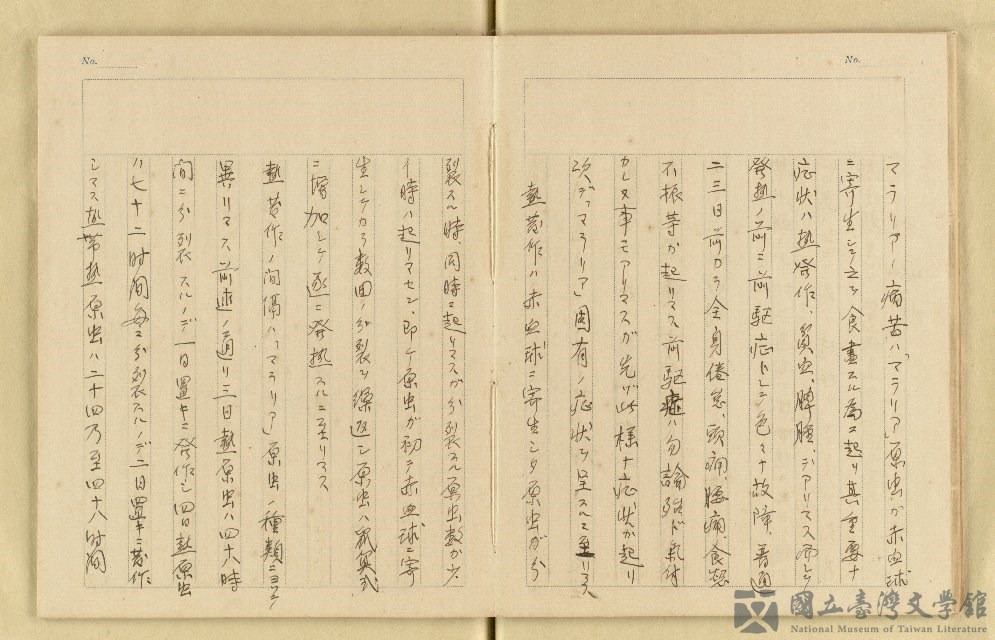 No.
マラリアノ病苦ハ「マラリア」原虫ガ赤血球
ニ寄生シテ之ヲ食盡スル為ニ起リ其重要ナ
症状ハ熱発作、貧血、脾腫、デアリマス而シテ
発熱ノ前ニ前駆症トシテ色々ナ故障、普通
二三日前カラ全身倦怠、頭痛、腰痛、食慾
不振等が起リマス前駆症ハ勿論殆ド気付
カレヌ事モアリマスガ先ヅ此様ナ症状が起リ
次デ「マラリア」固有ノ症状ヲ呈スルニ至リマス
熱発作ハ赤血球ニ寄生シタ原虫ガ分
No.
裂スル時、同時ニ起リマスガ分裂スル原虫数ガ少
イ時ハ起リマセン、即チ原虫ガ初テ赤血球ニ寄
生シテカラ数回ノ分裂ヲ繰返シ原虫ハ級算式
ニ増加シテ遂ニ発熱スルニ至リマス
熱発作ノ間隔ハ「マラリア」原虫ノ種類ニヨリ
異リマス前述ノ通リ三日熱原虫ハ四十八時
間ニ分裂スルノデ一日置キニ発作シ四日熱原虫
ハ七十二时間毎ニ分裂スルノデ二日置キニ発作
シマス熱帯熱原虫ハ二十四乃至四十八时間
國立臺灣文學館
National Museum of Taiwan Literature